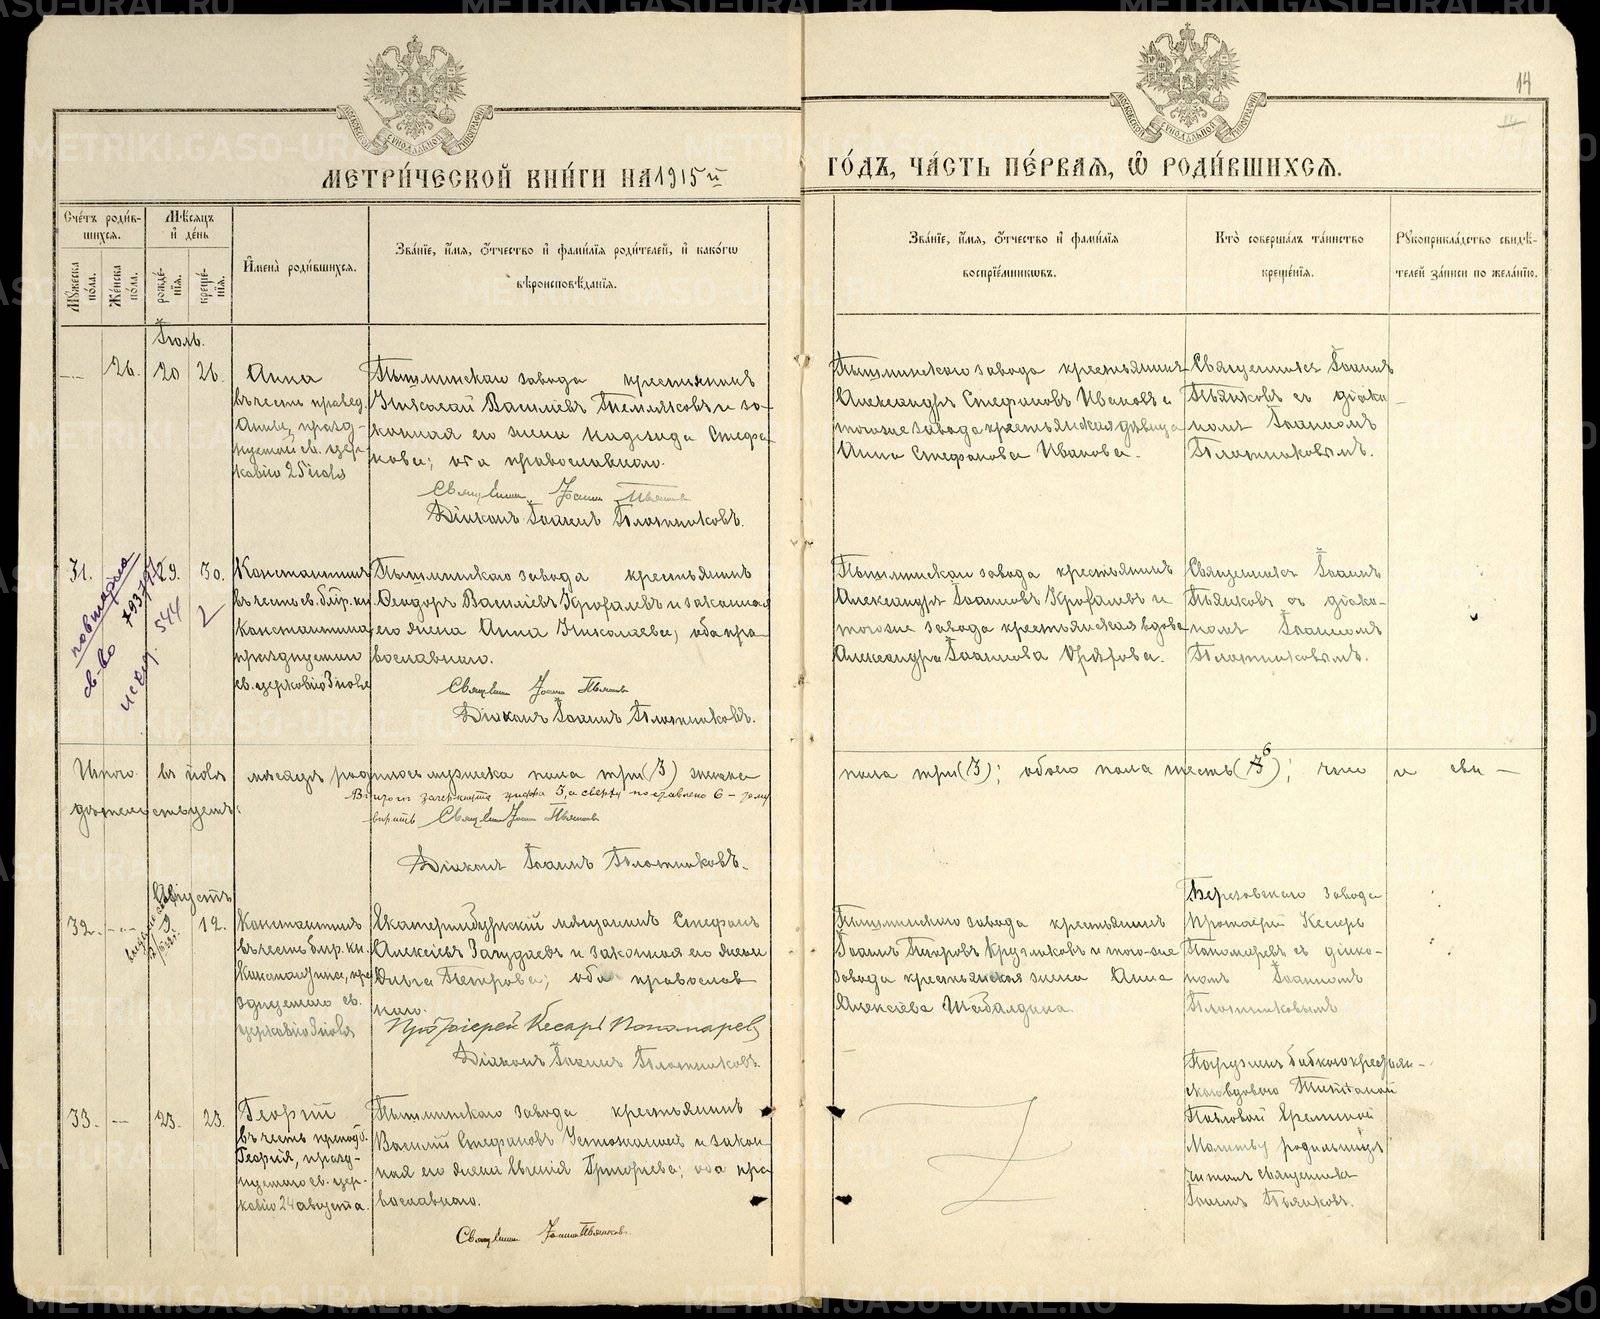 14
МЕТРИ́ЧЕСКОЙ КНИ́ГИ НА 1915й
ГО́ДЪ, ЧА́СТЬ ПЕ́РВАЯ, Ѡ҆ РОДИ́ВШИХСЯ.
Сче́тъ роди́в-
шихся.
Му́жеска по́ла.
Же́нска по́ла.
Мѣ́сяцъ
и҆ де́нь
рожде́-
нїя.
креще́-
нїя.
И҆мена̀ роди́вшихся.
Зва́нїе, и҆́мя, ѻ҆́тчество и҆ фами́лїя роди́телей, и҆ како́гѡ
вѣроисповѣ́данїя.
Зва́нїе, и҆́мя, ѻ҆́тчество и҆ фами́лїя
воспрїе́мниковъ.
Кто̀ соверша́лъ та́инство
креще́нїя.
Рукоприкла́дство свидѣ́-
телей за́писи по жела́нїю.
Іюль.
26. 20 26.
Анна
въ честь правед.
Анны, празд-
нуемой св. цер-
ковію 25 іюля
Пышминскаго завода крестьянинъ
Николай Васильевъ и за-
конная его жена Надежда Стефа-
нова; оба православнаго.
Священникъ Іоаннъ Пьянковъ
Діаконъ Іоаннъ Плотниковъ.
Пышминскаго завода крестьянинъ
Александръ Стефановъ Ивановъ и
того же завода крестьянская дѣвица
Анна Стефанова Иванова.
Священникъ Іоаннъ
Пьянковъ съ діако-
номъ Іоанномъ
Плотниковымъ.
31. 29. 30.
повторно
св-во
исход. 544
2
Константинъ
въ честь св. блгр. кн.
Константина,
празднуемаго
св. церковію 3 іюля
Пышминскаго завода крестьянинъ
Ѳеодоръ Васильевъ и законная
его жена Анна Николаева; оба пра-
вославнаго.
Священникъ Іоаннъ Пьянковъ
Діаконъ Іоаннъ Плотниковъ.
Пышминскаго завода крестьянинъ
Александръ Іоанновъ и
того же завода крестьянская вдова
Александра Іоаннова
Священникъ Іоаннъ
Пьянковъ съ діако-
номъ Іоанномъ
Плотниковымъ.
Итого въ іюлѣ мѣсяцѣ родилось мужска пола три (3) женска
пола три (3); обоего пола шесть (6); что и сви-
дѣтельствуемъ:
В итогѣ зачеркнута цифра 3, а сверху поставлено 6 – тому
вѣрить Священникъ Іоаннъ Пьянковъ
Діаконъ Іоаннъ Плотниковъ.
Августъ
32. 9 12.
Константинъ
въ честь блгр. кн.
Константина, пра-
зднуемаго св.
церковію 3 іюля
Екатеринбургскій мѣщанинъ Стефанъ
Алексѣевъ и законная его жена
Ольга Петрова; оба православ-
наго.
Протоіерей Кесарь Пономаревъ
Діаконъ Іоаннъ Плотниковъ.
Пышминскаго завода крестьянинъ
Іоаннъ Кругликовъ и того-же
завода крестьянская жена Анна
Алексѣева Шабалдина.
Березовскаго завода
протоіерей Кесарь
Пономаревъ съ діако-
номъ Іоанномъ
Плотниковымъ
33. 23. 23.
Георгій
въ честь преподоб.
Георгія, празд-
нуемаго св. цер-
ковію 24 августа.
Пышминскаго завода крестьянинъ
Василій Стефановъ и закон-
ная его жена Евгенія Григорьева; оба пра-
вославнаго.
Священникъ Іоаннъ Пьянковъ.
Погруженъ бабкою крестьян-
скою вдовою
Павловой
Молитву родильницѣ
читалъ священникъ
Іоаннъ Пьянковъ.